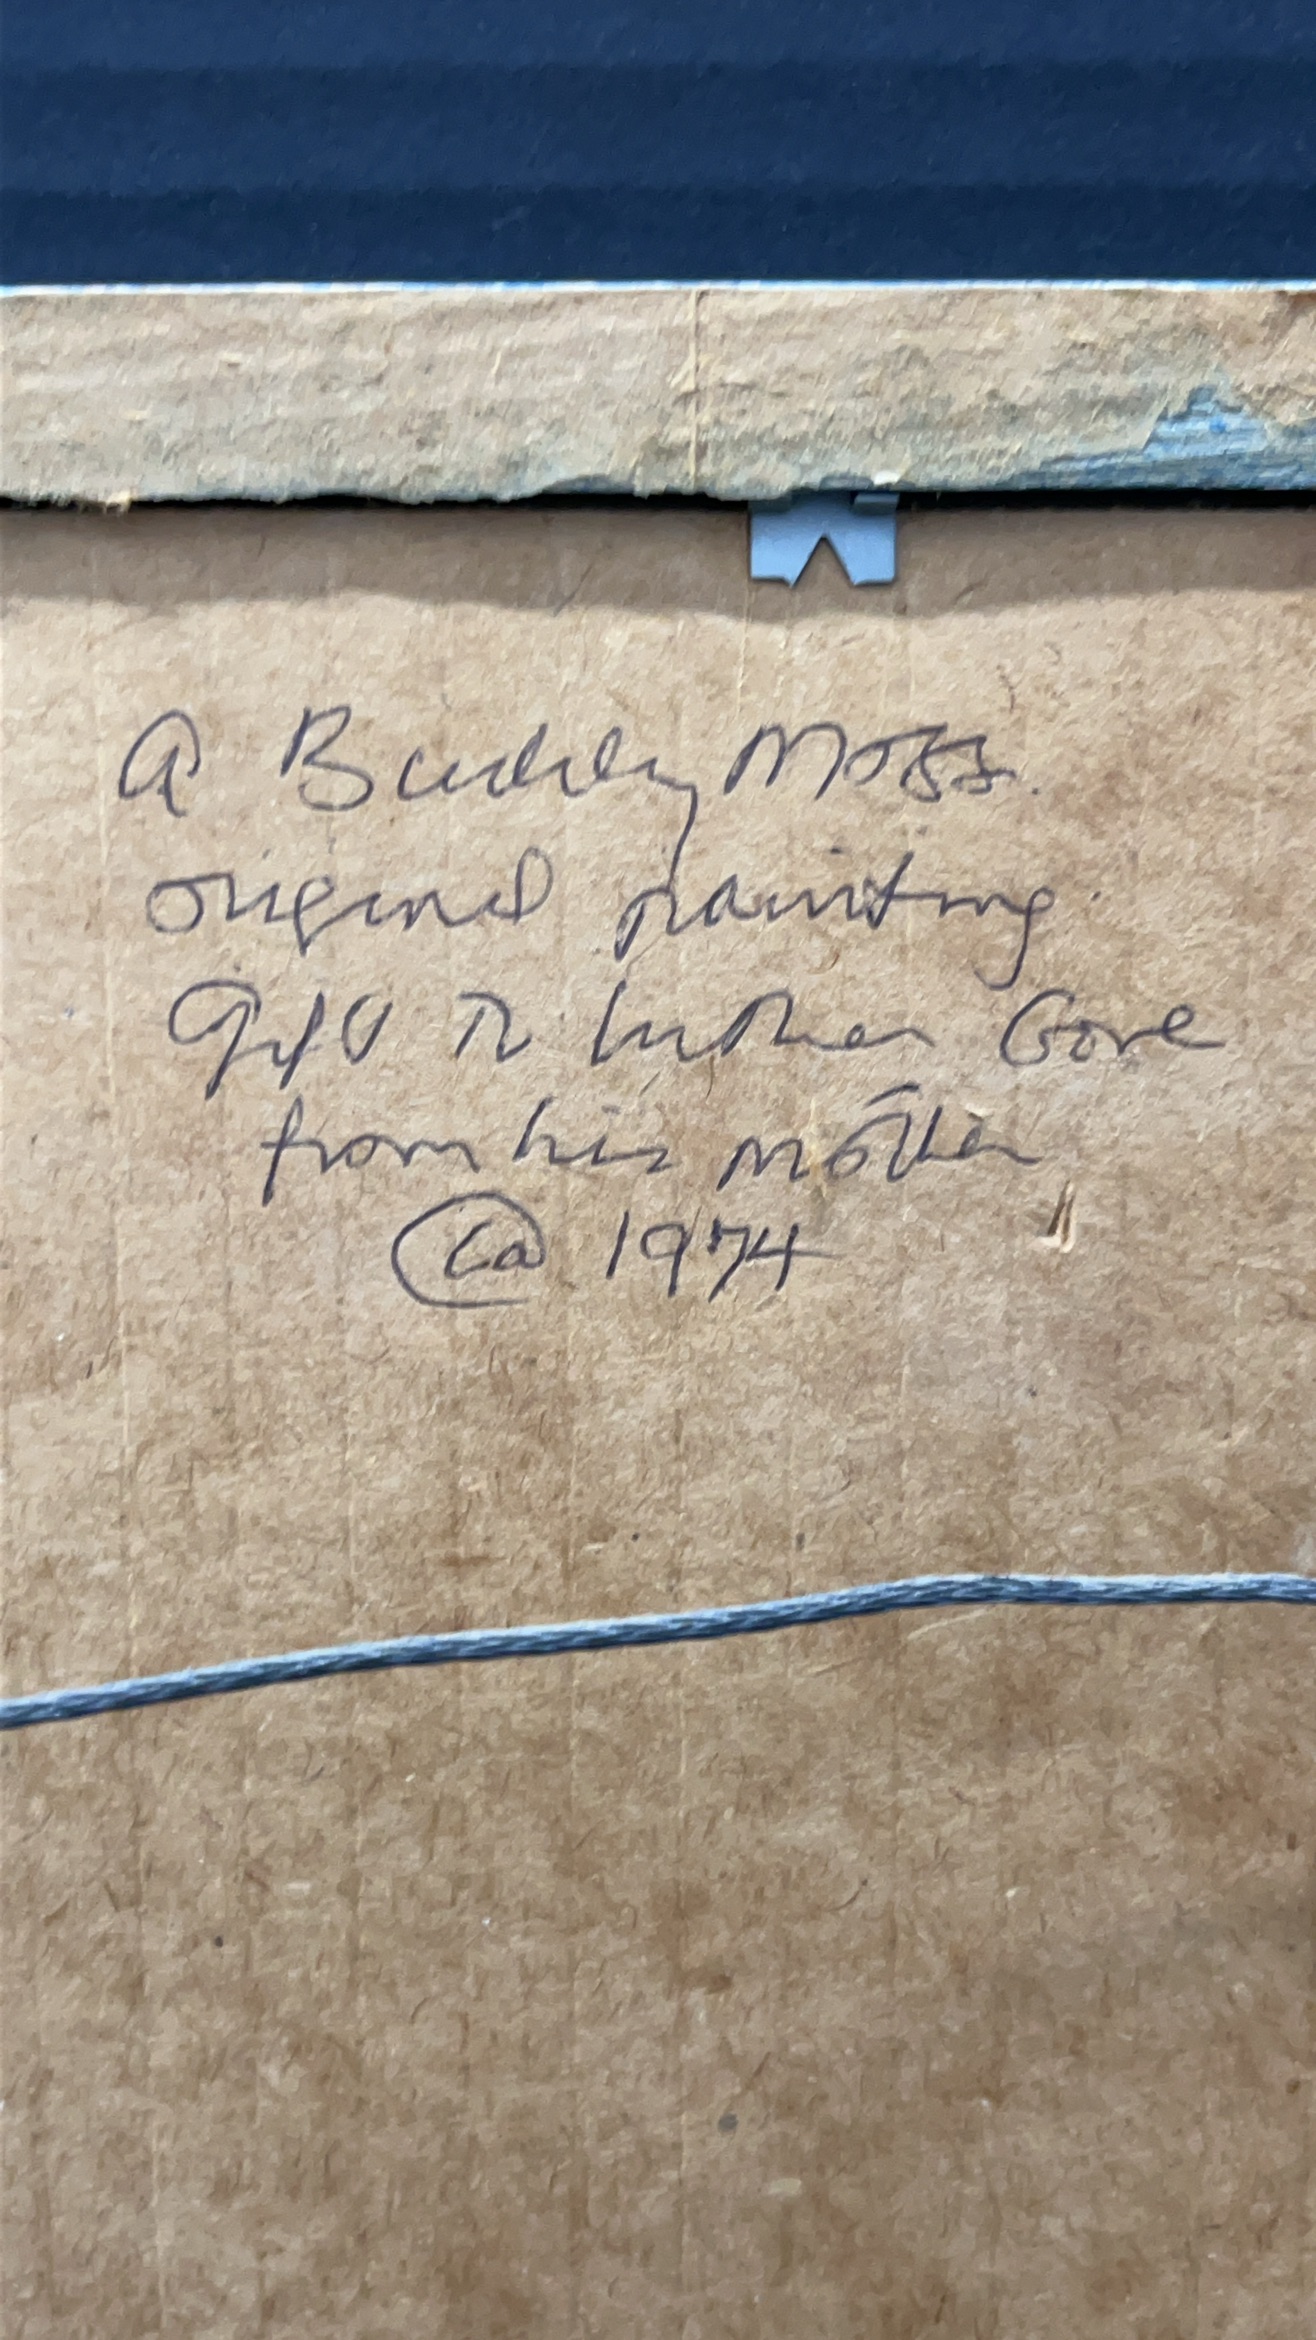 A Buddy Moss.
original painting
Gift to Luther Gore
from his mother
Ca 1974